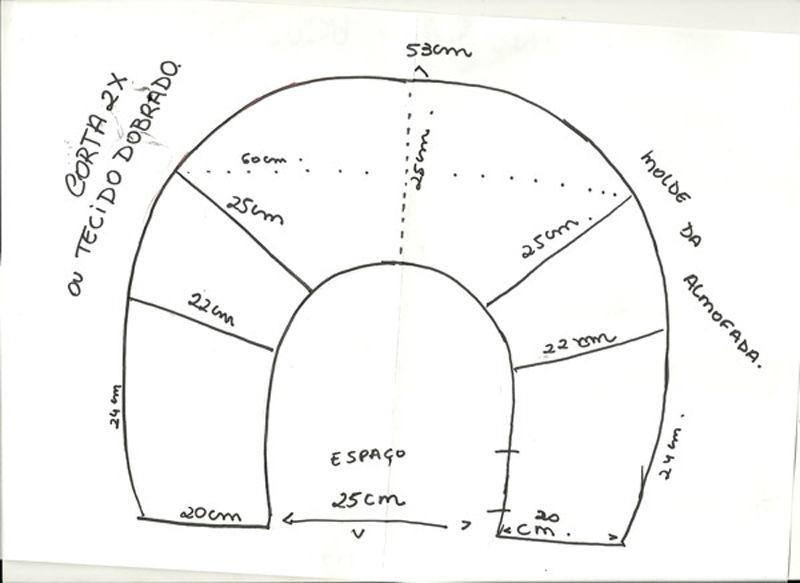 53cm
CORTA 2X
OU TECIDO DOBRADO.
60cm.
25cm.
25cm
25cm.
MOLDE DA ALMOFADA.
22cm
22cm
24cm
24cm.
ESPAÇO
25cm
20cm
20
cm.